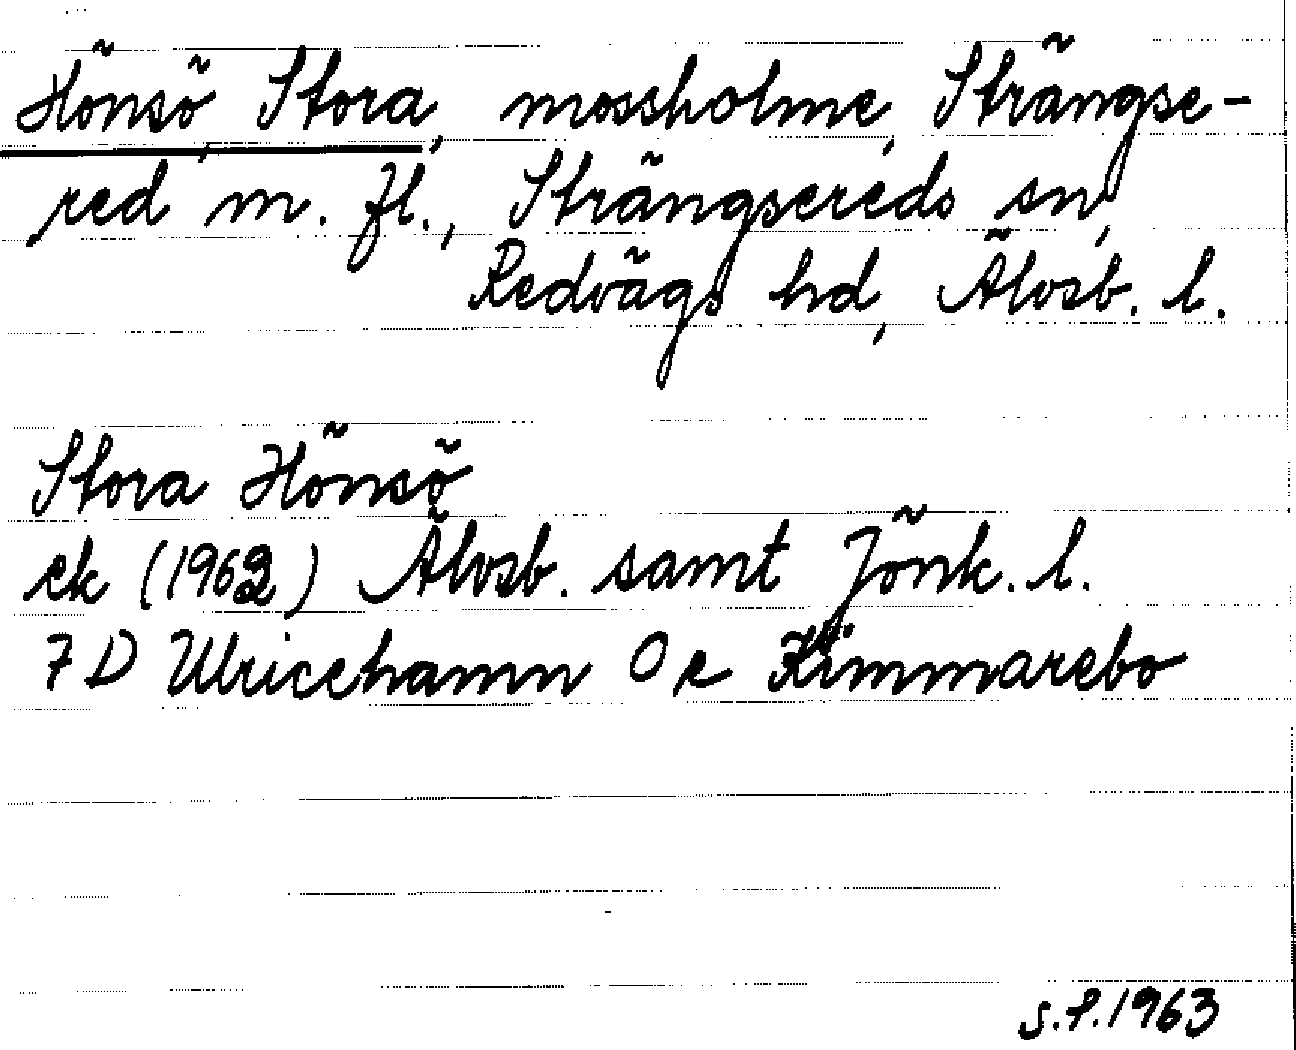 Hönsö, Stora, mossholme, Strängse-
red m. fl., Strängsereds sn,
Redvägs hd, Älvsb. l.
Stora Hönsö
ek (1962) Älvsb. samt Jönk. l.
7 D Ulricehamn 0 e Kimmarebo
S.P. 1963